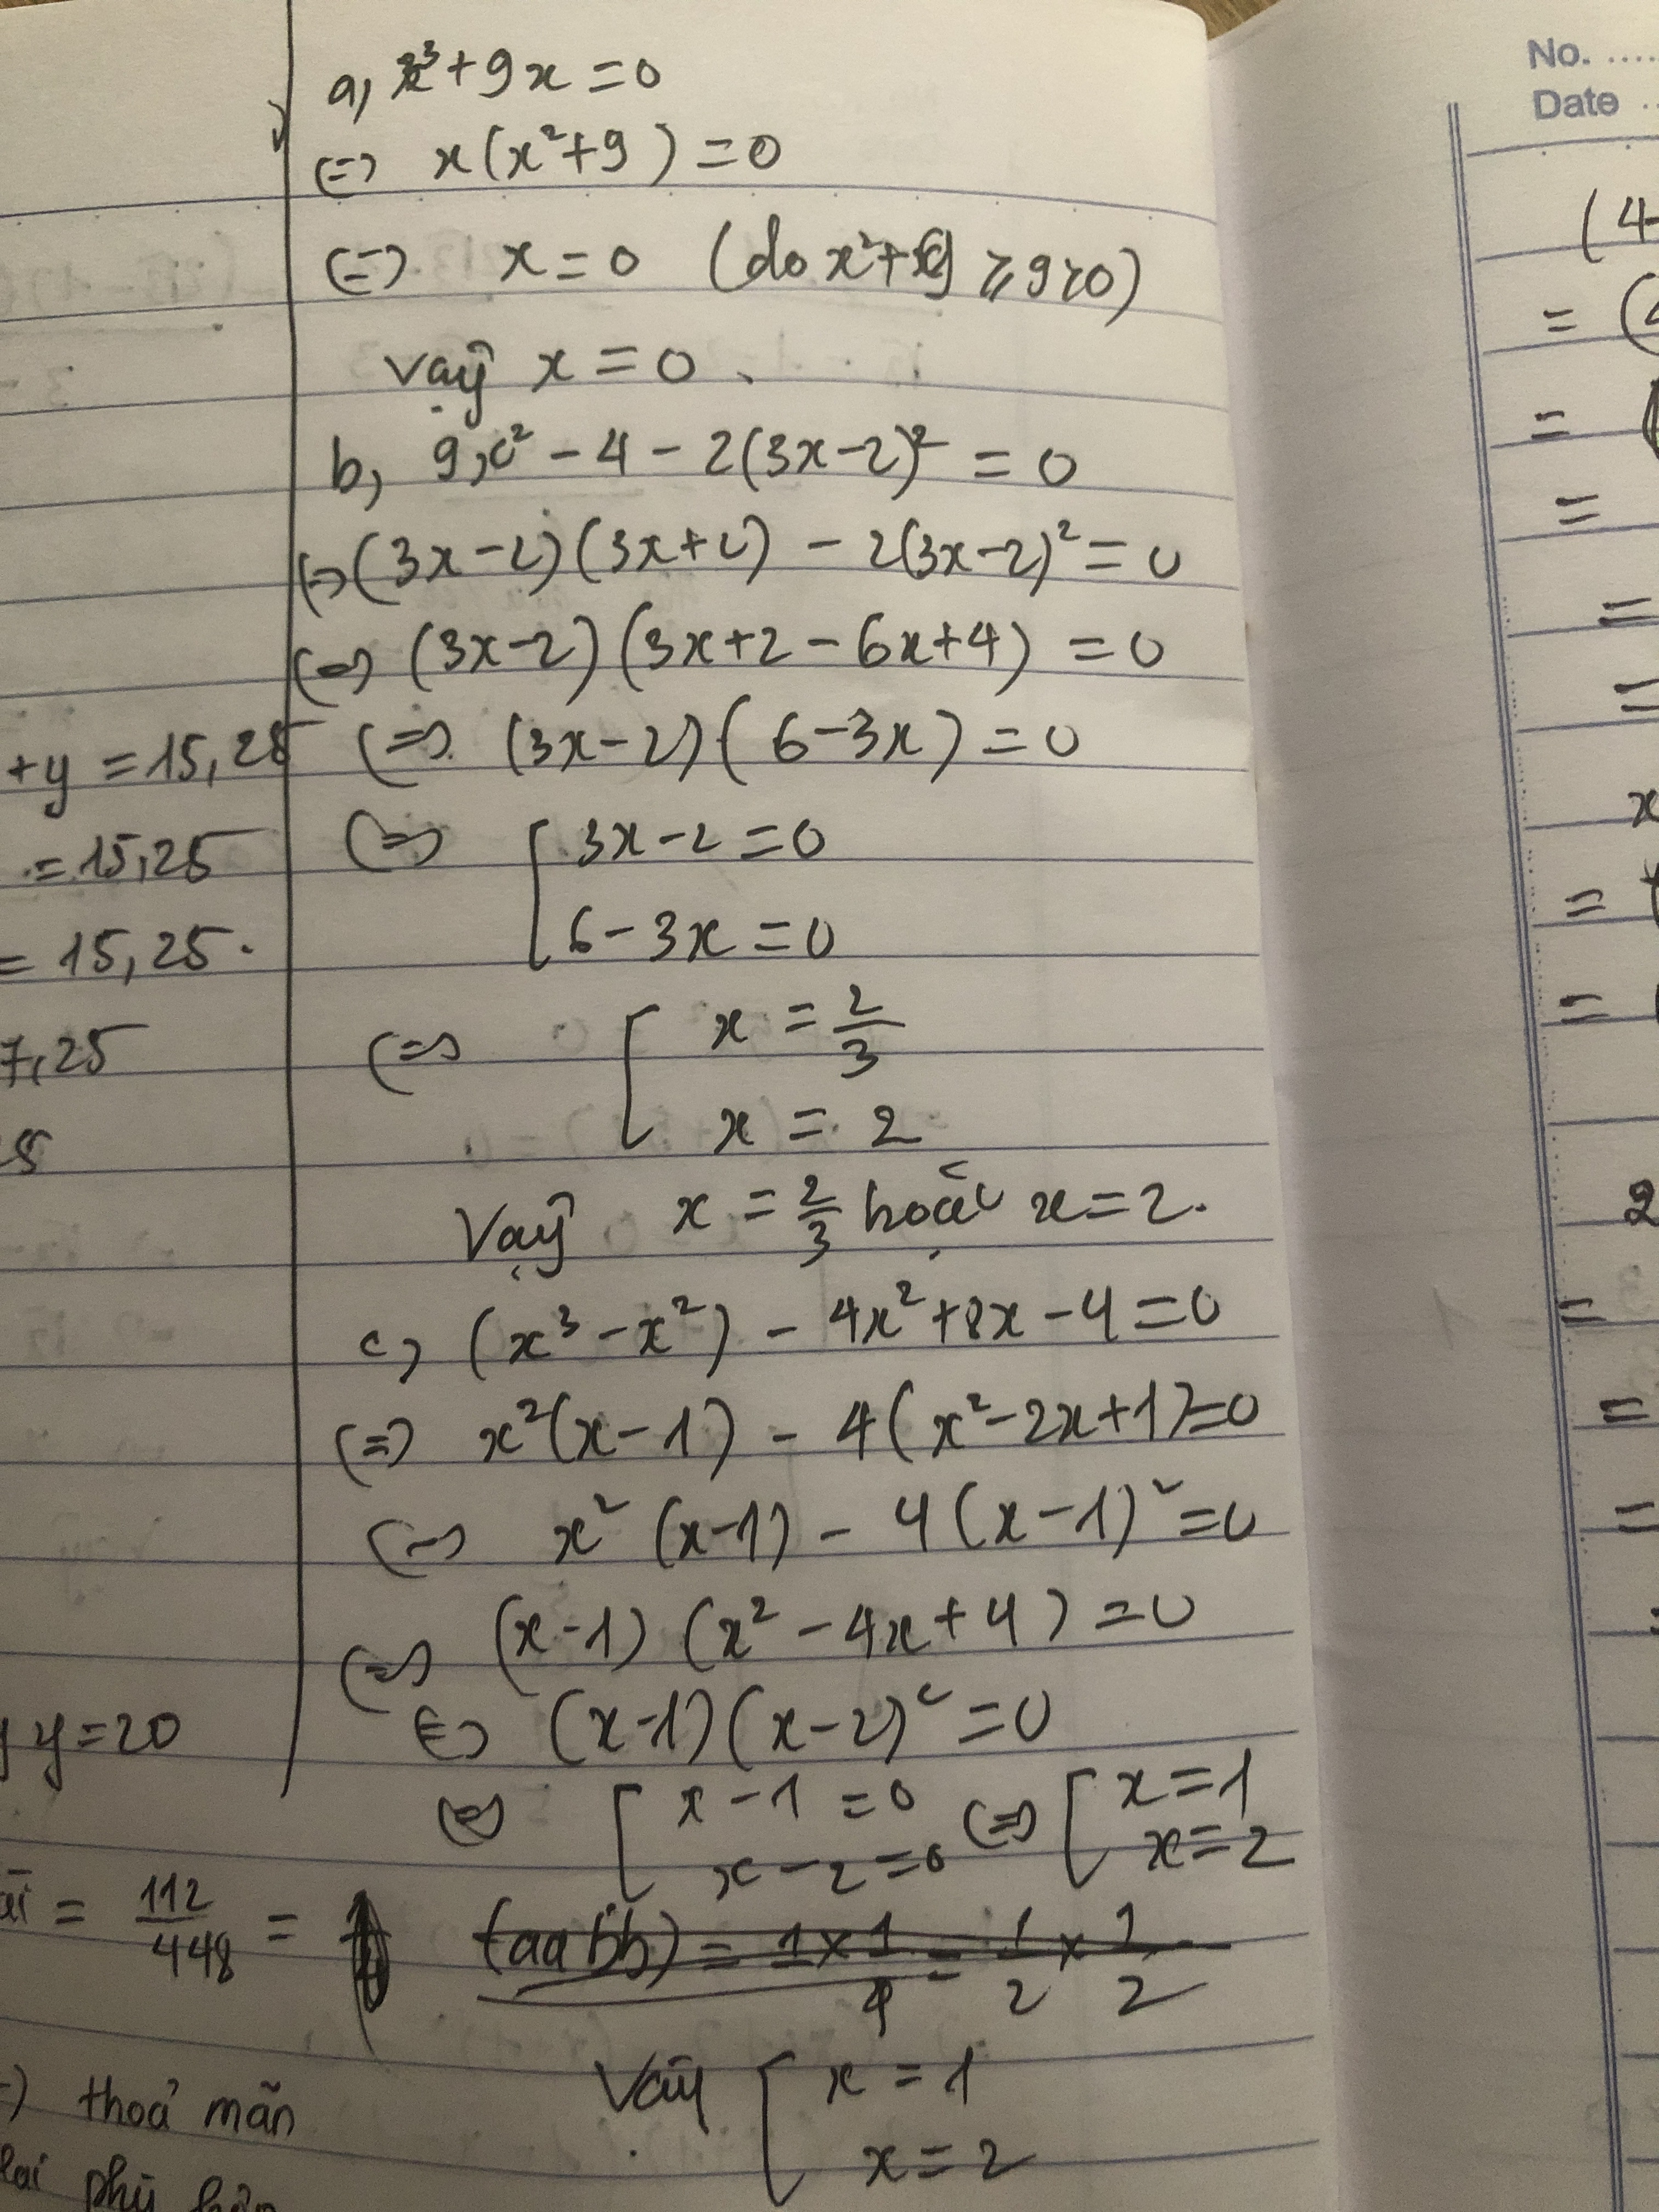 a, x³ + 9x = 0
(=) x(x² + 9) = 0
(=) x = 0 (do x² + 9 ⩾ 9 > 0)
Vậy x = 0.
b, 9x² - 4 - 2(3x - 2)² = 0
(=) (3x - 2)(3x + 2) - 2(3x - 2)² = 0
(=) (3x - 2)(3x + 2 - 6x + 4) = 0
(=) (3x - 2)(6 - 3x) = 0
(=) [ 3x - 2 = 0
6 - 3x = 0
(=) [ x = 2/3
x = 2
Vậy x = 2/3 hoặc x = 2.
c, (x³ - x²) - 4x² + 8x - 4 = 0
(=) x²(x - 1) - 4(x² - 2x + 1) = 0
(=) x²(x - 1) - 4(x - 1)² = 0
(=) (x - 1)(x² - 4x + 4) = 0
(=) (x - 1)(x - 2)² = 0
(=) [ x - 1 = 0 (=) [ x = 1
x - 2 = 0 x = 2
Vậy [ x = 1
x = 2
+ y = 15,25
= 15,25
= 15,25.
7,25
y = 20
= 112/448 =
thoả mãn
No.
Date
(4-
= (
=
=
=
=
x
=
=
2
=
=
=